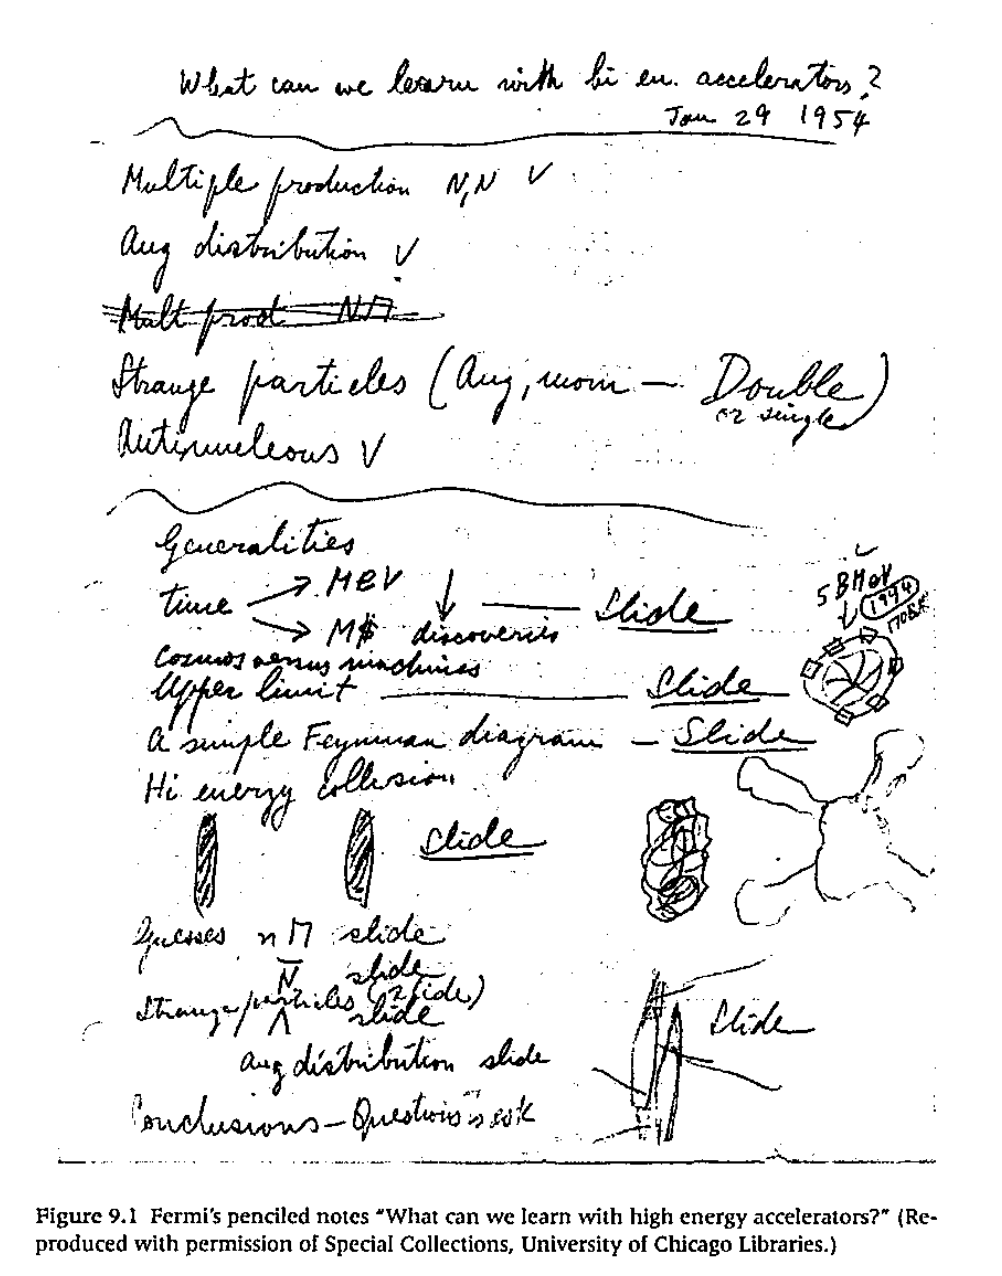 What can we learn with hi en. accelerators?
Jan 29 1954
Multiple production N,N V
Ang distribution V
Mult prod NΠ
Strange particles (Ang, mom — Double
or single)
Antinucleous V
Generalities
time MeV
M$ discoveries — Slide
5 BMeV
1994
Cosmos versus machines
Upper limit — Slide
A simple Feynman diagram — Slide
Hi energy collision
Slide
Guesses n Π slide
N̅ slide
Strange particles (2 slide)
Λ slide
Slide
ang distribution slide
Conclusions — Questions
Figure 9.1 Fermi's penciled notes "What can we learn with high energy accelerators?" (Re-
produced with permission of Special Collections, University of Chicago Libraries.)